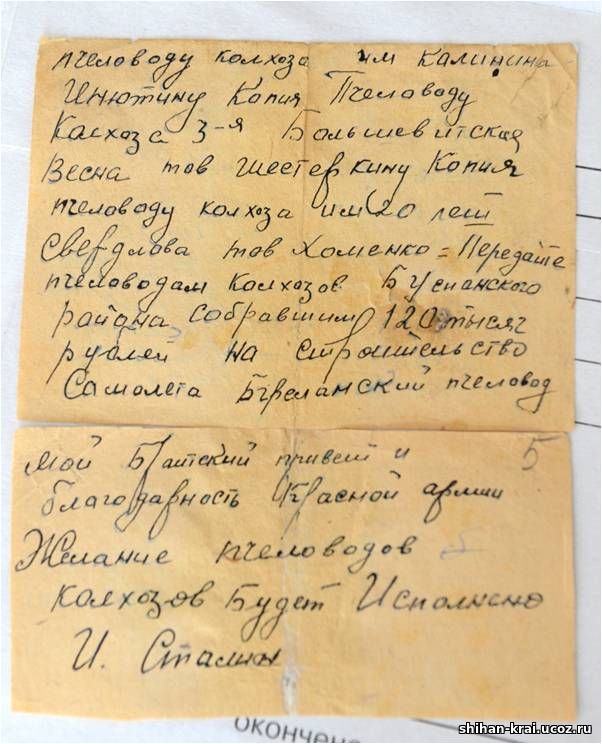 пчеловоду колхоза им Калинина
Инютину Копия Пчеловоду
Колхоза 3-я Большевитская
Весна тов Шестеркину Копия
пчеловоду колхоза им 20 лет
Свердлова тов Хоменко = Передайте
пчеловодам Колхозов
района собравшим 120 тысяч
рублей на строительство
Самолета пчеловод
Мой Братский привет и 5
благодарность Красной армии
Желание пчеловодов
колхозов Будет Исполнено
И. Сталин
окончено
shihan-krai.ucoz.ru